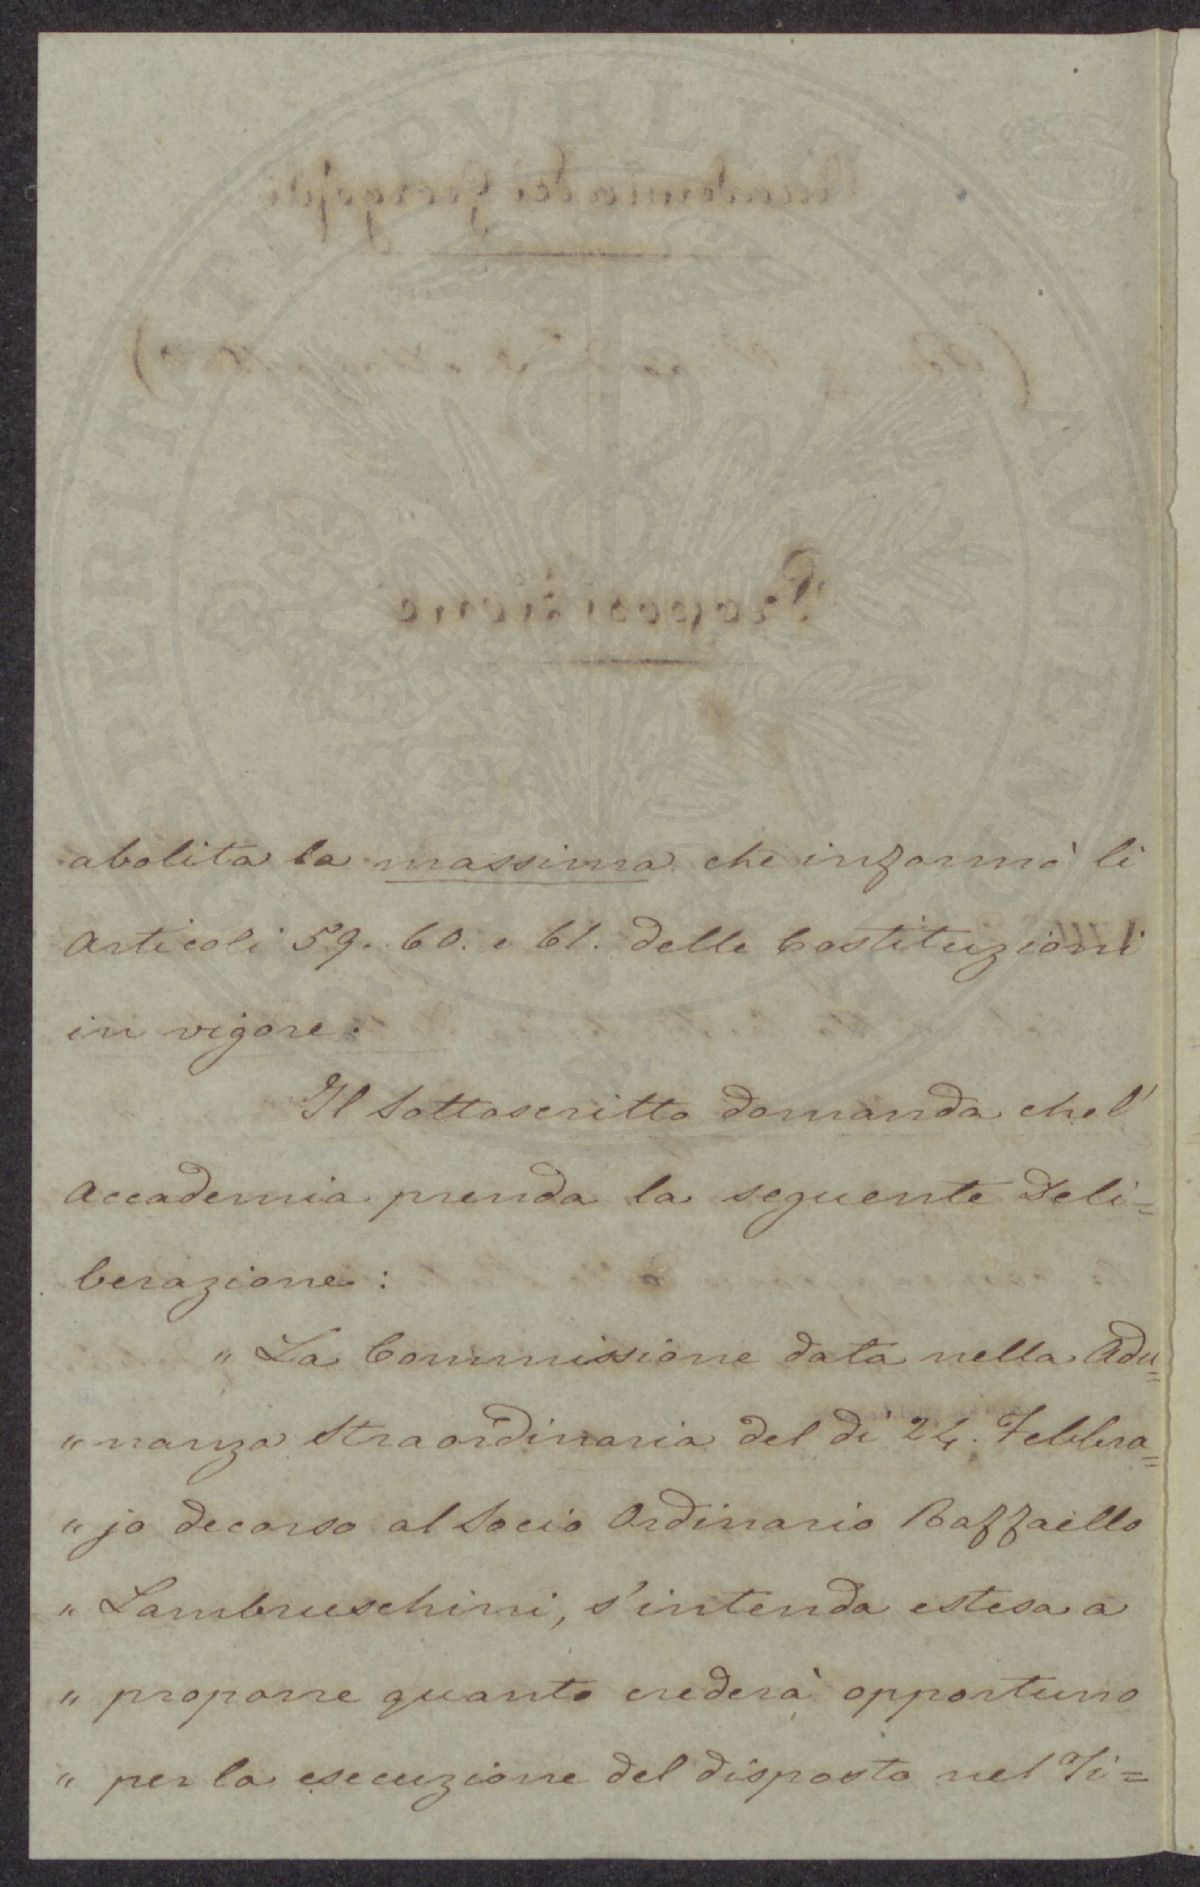 abolita la massima che informò li
Articoli 59. 60. e 61. delle Costituzioni
in vigore.
Il Sottoscritto domanda che l'
Accademia prenda la seguente Deli=
berazione:
„ La Commissione data nella Adu=
„ nanza Straordinaria del dì 24. Febbra=
„ jo decorso al Socio Ordinario Raffaello
„ Lambruschini, s'intenda estesa a
„ proporre quanto crederà opportuno
„ per la esecuzione del disposto nel Ti=